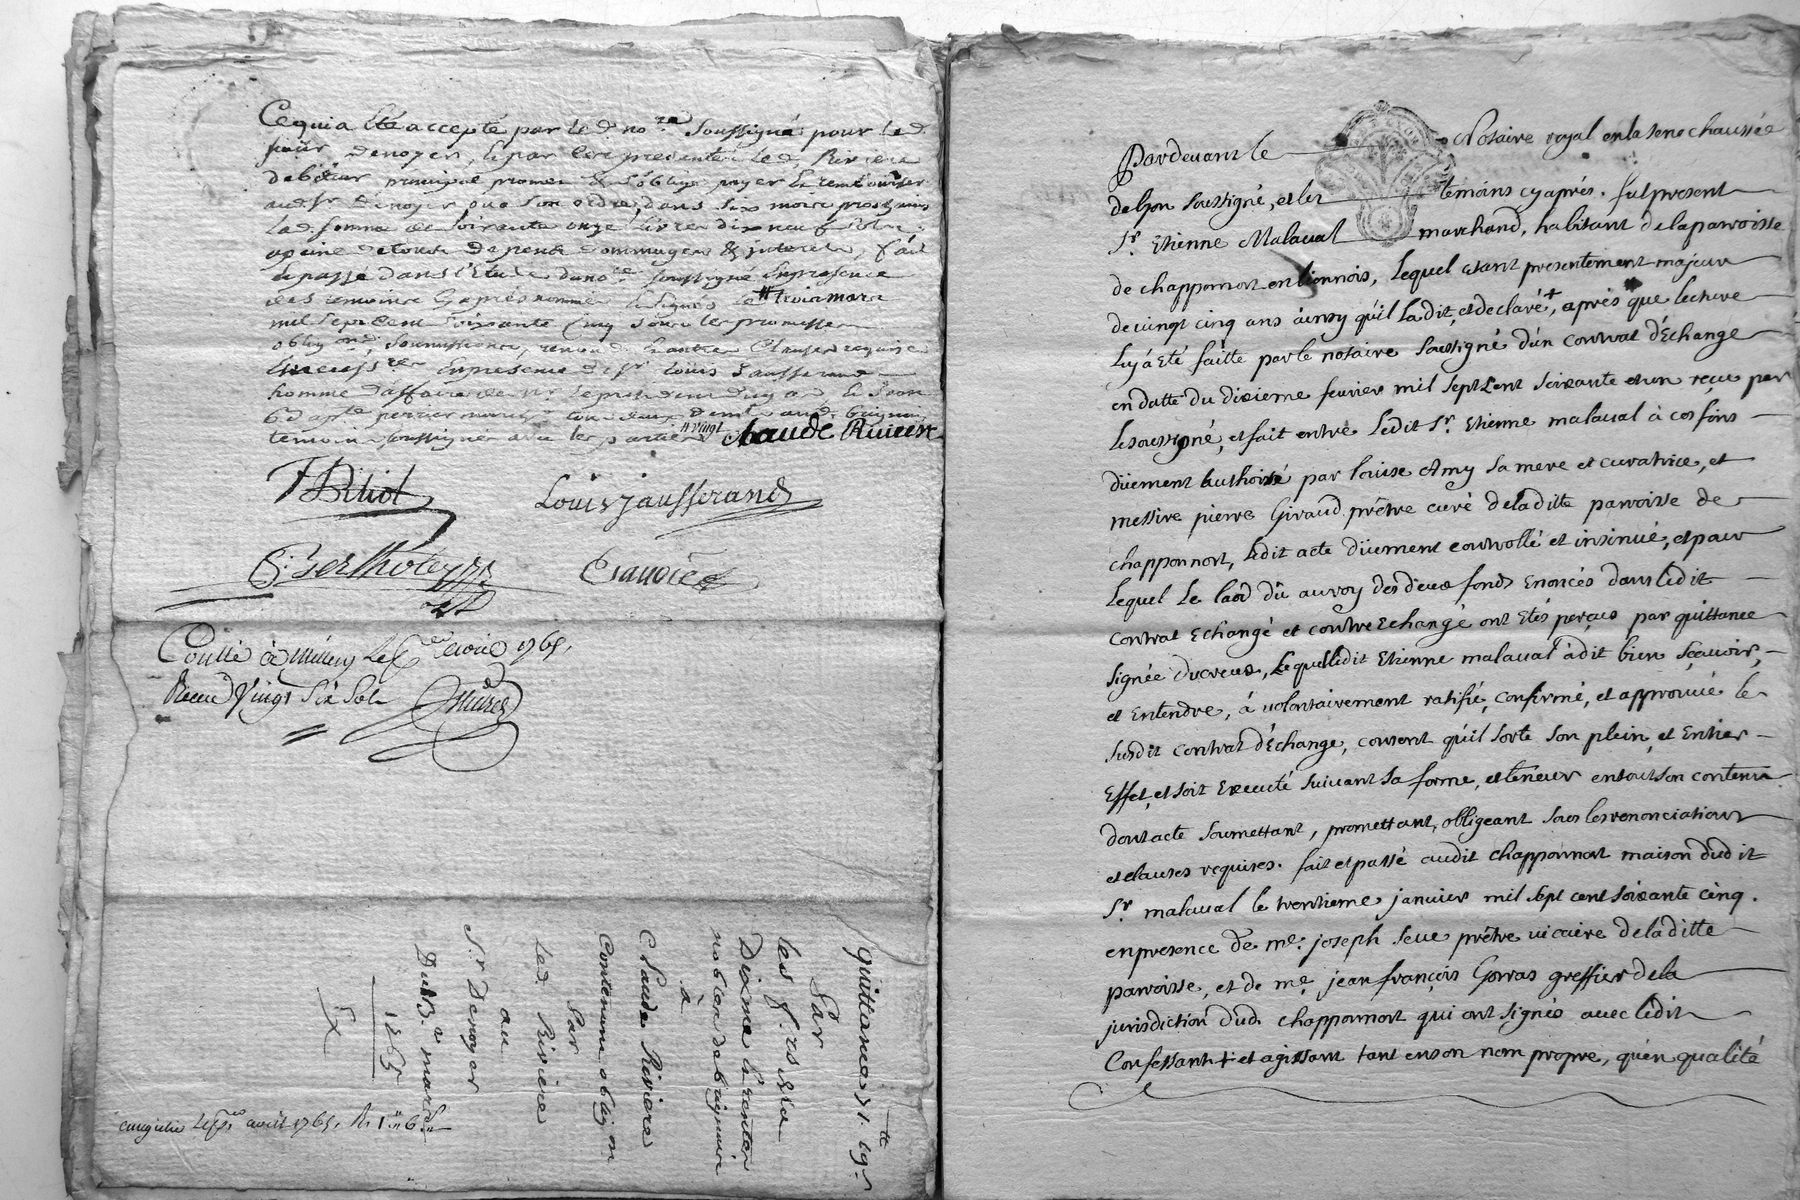 Ce qui a été accepté par le d no.re soussigné pour le d.
sieur Denoyer, et par ces presentes led. Riviere
debiteur principal promet & s'oblige payer et rembourser
aud. Sr. Denoyer ou a son ordre, dans six mois prochains
la d. somme de soixante onze livres dix neuf sols
a peine de tous depens dommages & interets, fait
et passé dans l'Etude du no.re soussigné en presence
des temoins cy après nommés le trois mars
mil sept cent soixante cinq sous les promesses
oblig.ons, soumissions, renon.ons et autres clauses requises
en presence de sr. Louis Jausserand
homme d'affaires de Mr.
temoins soussignés avec les parties Claude Riviere
Louis Jausserand
C. Bertholey
Con.llé à Millery Le 1765.
Reçu Vingt six sols
quittance 71.tt 19.s
Par
les f.rs de la
Dixme et rentes
nobles de
à
Claude Riviere
Contenant oblig.on
Par
Led. Riviere
au
S.r Denoyer
Du 3.e mars
1765
avril 1765.
Pardevant le Notaire royal en la senechaussée
de Lyon soussigné, et les temoins cy après. fut present
Sr. Etienne Malaval marchand, habitant de la parroisse
de chapponost en lionnois, lequel etant presentement majeur
de vingt cinq ans ainsy qu'il l'a dit, et declaré +, après que lecture
luy a eté faitte par le notaire soussigné d'un contrat d'Echange
en datte du dixieme fevrier mil sept cent soixante et un reçu par
le soussigné, et fait entre ledit Sr. Etienne malaval à ces fins
düement authorisé par louise Amy sa mere et curatrice, et
messire pierre Giraud prêtre curé de la ditte parroisse de
chapponost, ledit acte düement controllé et insinué, et pour
lequel le laod dû au roy des deux fonds Enoncés dans ledit
contrat Echangé et contre Echangé ont Etés perçus par quittance
signée ducreux, lequel ledit Etienne malaval à dit bien sçavoir,
et Entendre, à volontairement ratifié, confirmé, et approuvé le
susdit contrat d'Echange, consent qu'il sorte son plein, et Entier
Effet, et soit Executé suivant sa forme, et teneur en tout son contenu
dont acte soumettant, promettant, obligeant sous les renonciations
et clauses requises. fait et passé audit chapponost maison dudit
Sr. malaval le trentieme janvier mil sept cent soixante cinq.
en presence de me. joseph Seve prêtre vicaire de la ditte
parroisse, et de me. jean françois Gorras greffier de la
jurisdiction dud. chapponost qui ont signés avec ledit
Confessant + et agissant tant en son nom propre, qu'en qualité